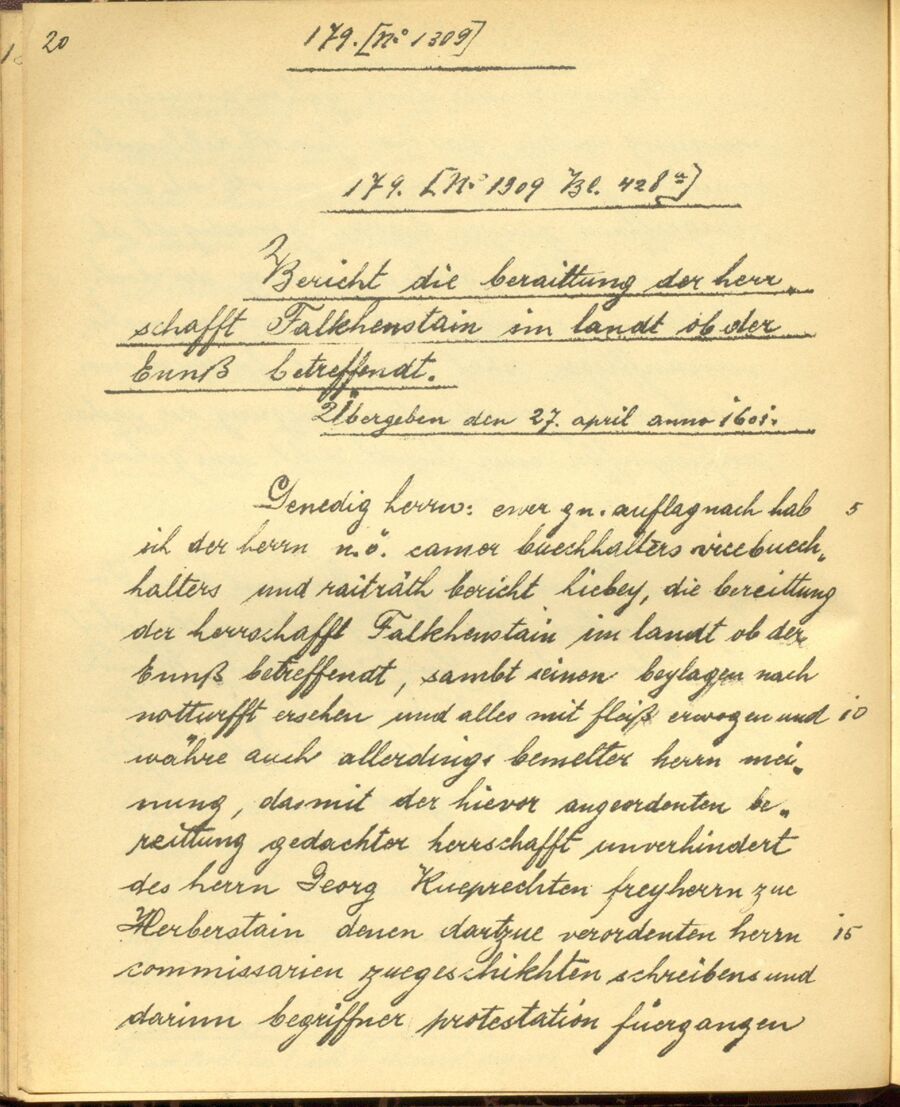 20
179. [No 1309]
179. [No 1309 Bl. 428a]
Bericht die beraittung der herr„
schafft Falkhenstain im landt ob der
Ennß betreffendt.
Übergeben den 27. april anno 1601.
Genedig herrn: ewer gn. auflag nach hab 5
ich der herrn n.ö. camer buechhalters vicebuech„
halters und raiträth bericht hiebey, die bereittung
der herrschafft Falkhenstain im landt ob der
Ennß betreffendt, sambt seinen beylagen nach
notturfft ersehen und alles mit fleiß erwogen und 10
währe auch allerdings bemelter herrn mei„
nung, das mit der hievor angeordenten be„
reittung gedachter herrschafft unverhindert
des herrn Georg Rueprechten freyherrn zue
Herberstain denen dartzue verordenten herrn 15
commissarien zuegeschikhten schreibens und
darinn begriffner protestation füergangen